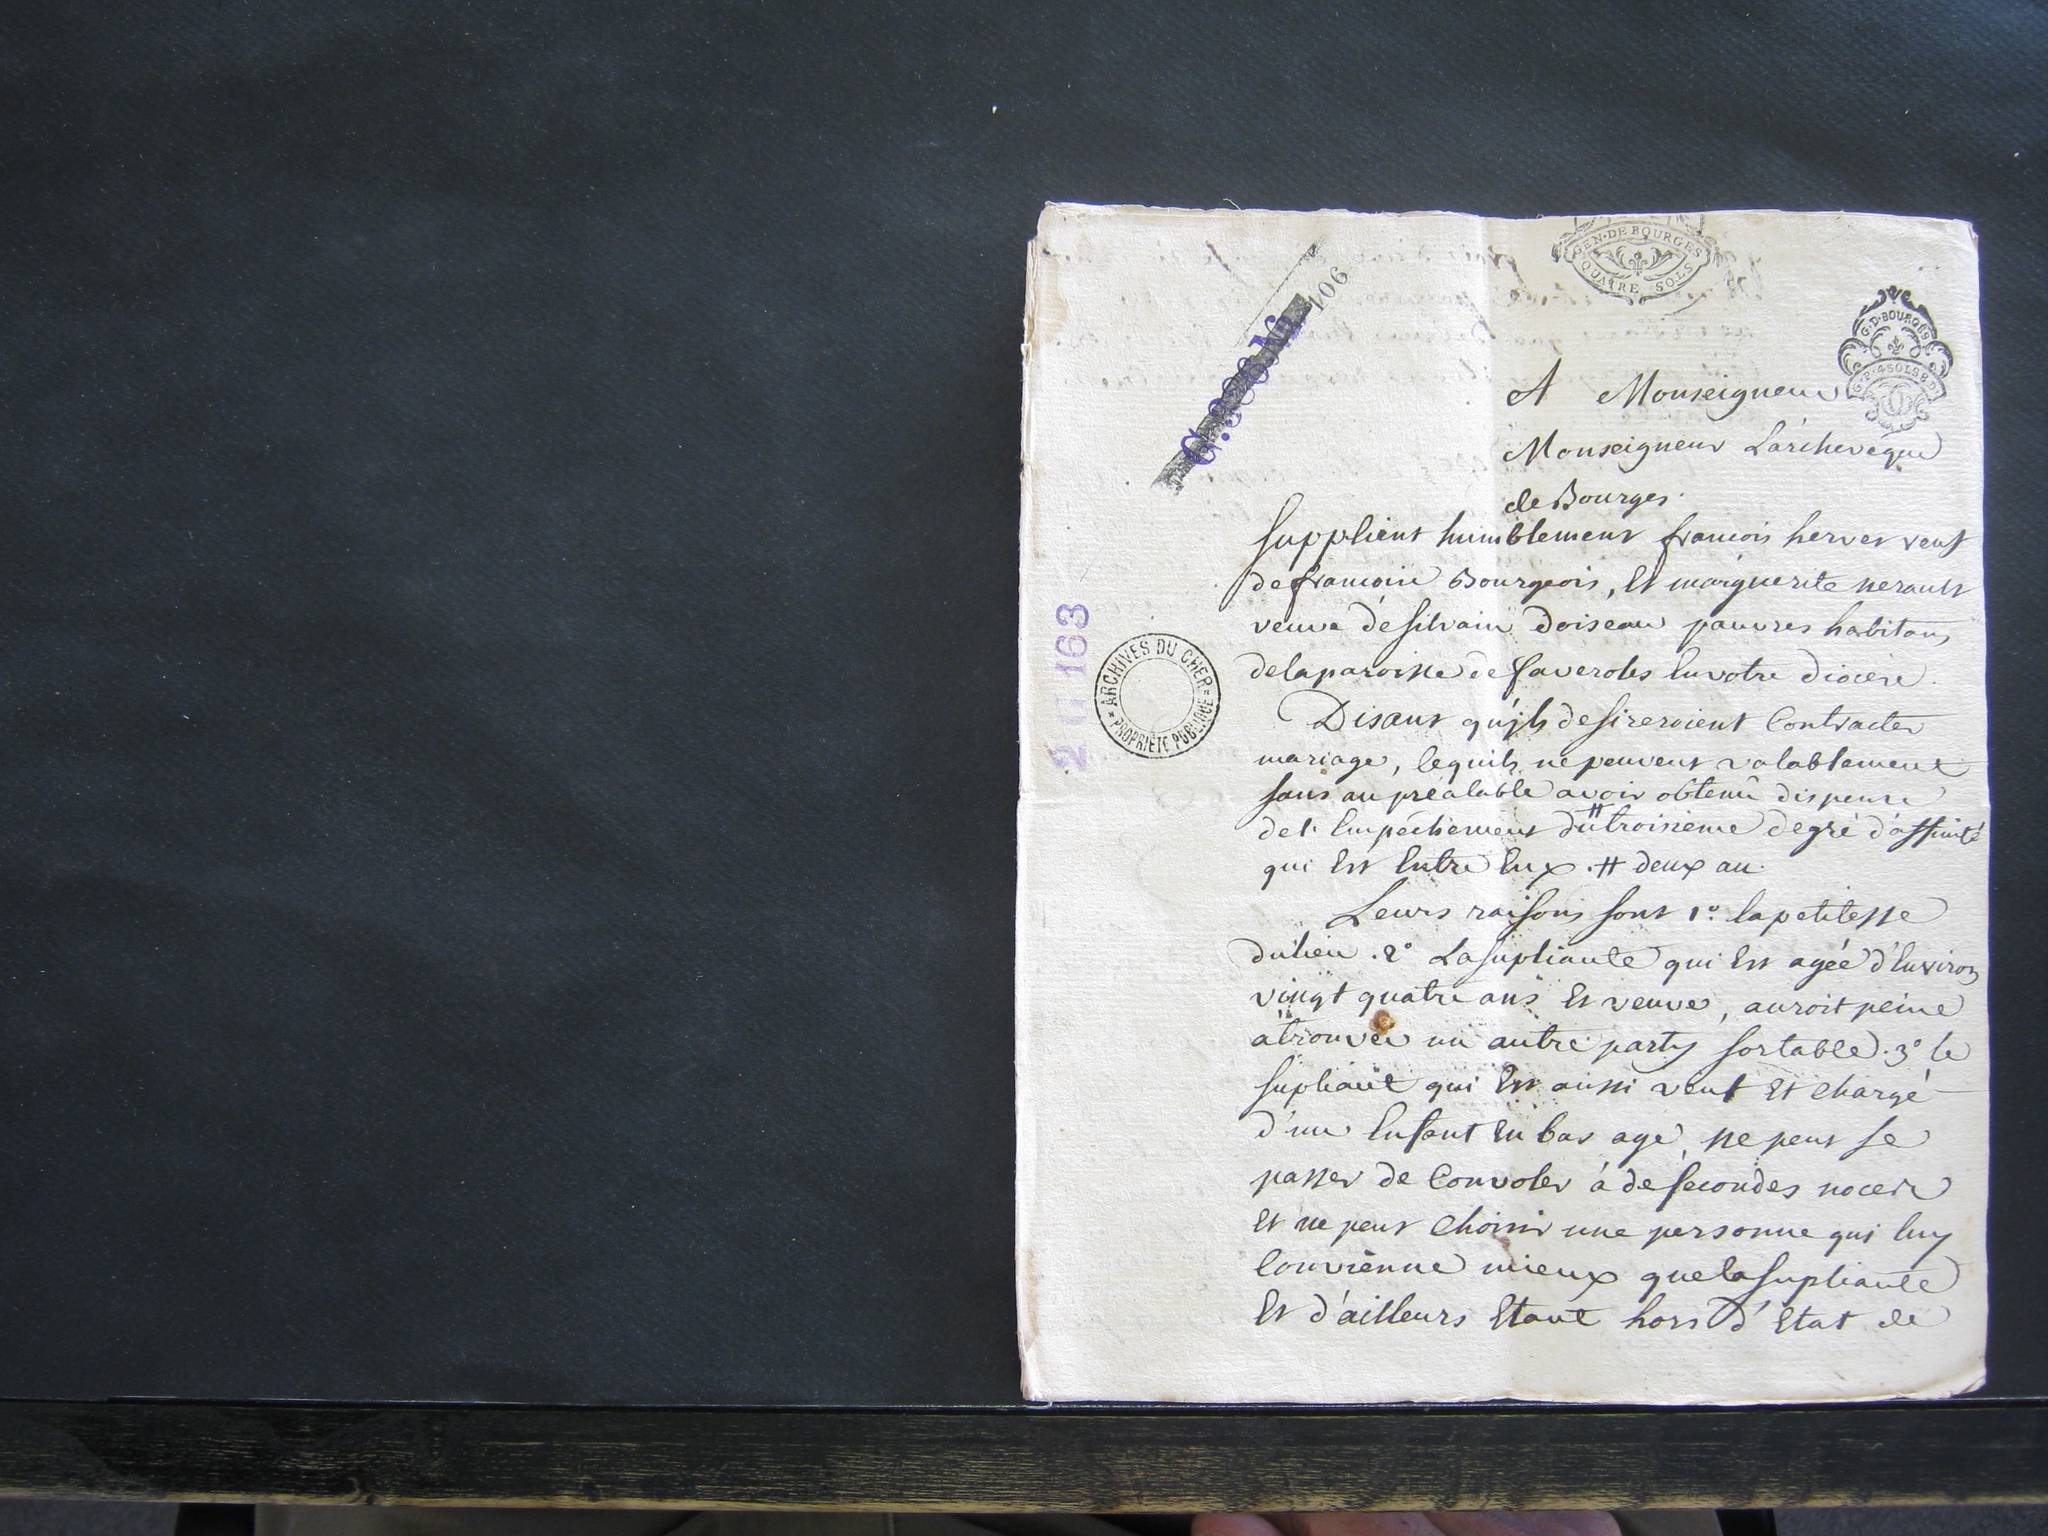 GEN·DE BOURGES
QUATRE SOLS
G·D·BOURGES
G·P·4SOLS8D
106
2 G 163
ARCHIVES DU CHER
PROPRIÉTÉ PUBLIQUE
A Monseigneur
Monseigneur L'archeveque
de Bourges.
Supplient humblement francois herver veuf
de francoise Bourgeois, et marguerite nerault
veuve de silvain Doiseau pauvres habitans
de la paroisse de faveroles en votre diocese.
Disant qu'jls desireroient Contracter
mariage, le quils ne peuvent valablement
sans au préalable avoir obtenû dispense
de l'empechement du # troisieme degré d'affinité
qui est entre eux. # deux au.
Leurs raisons sont 1° la petitesse
du lieu. 2° La supliante qui est agée d'environ
vingt quatre ans et veuve, auroit peine
a trouver un autre party sortable. 3° le
supliant qui est aussi veuf et chargé
d'un enfant en bas age, ne peut se
passer de Convoler à de secondes noces
et ne peut choisir une personne qui luy
Convienne mieux que la supliante
et d'ailleurs etant hors d'etat de